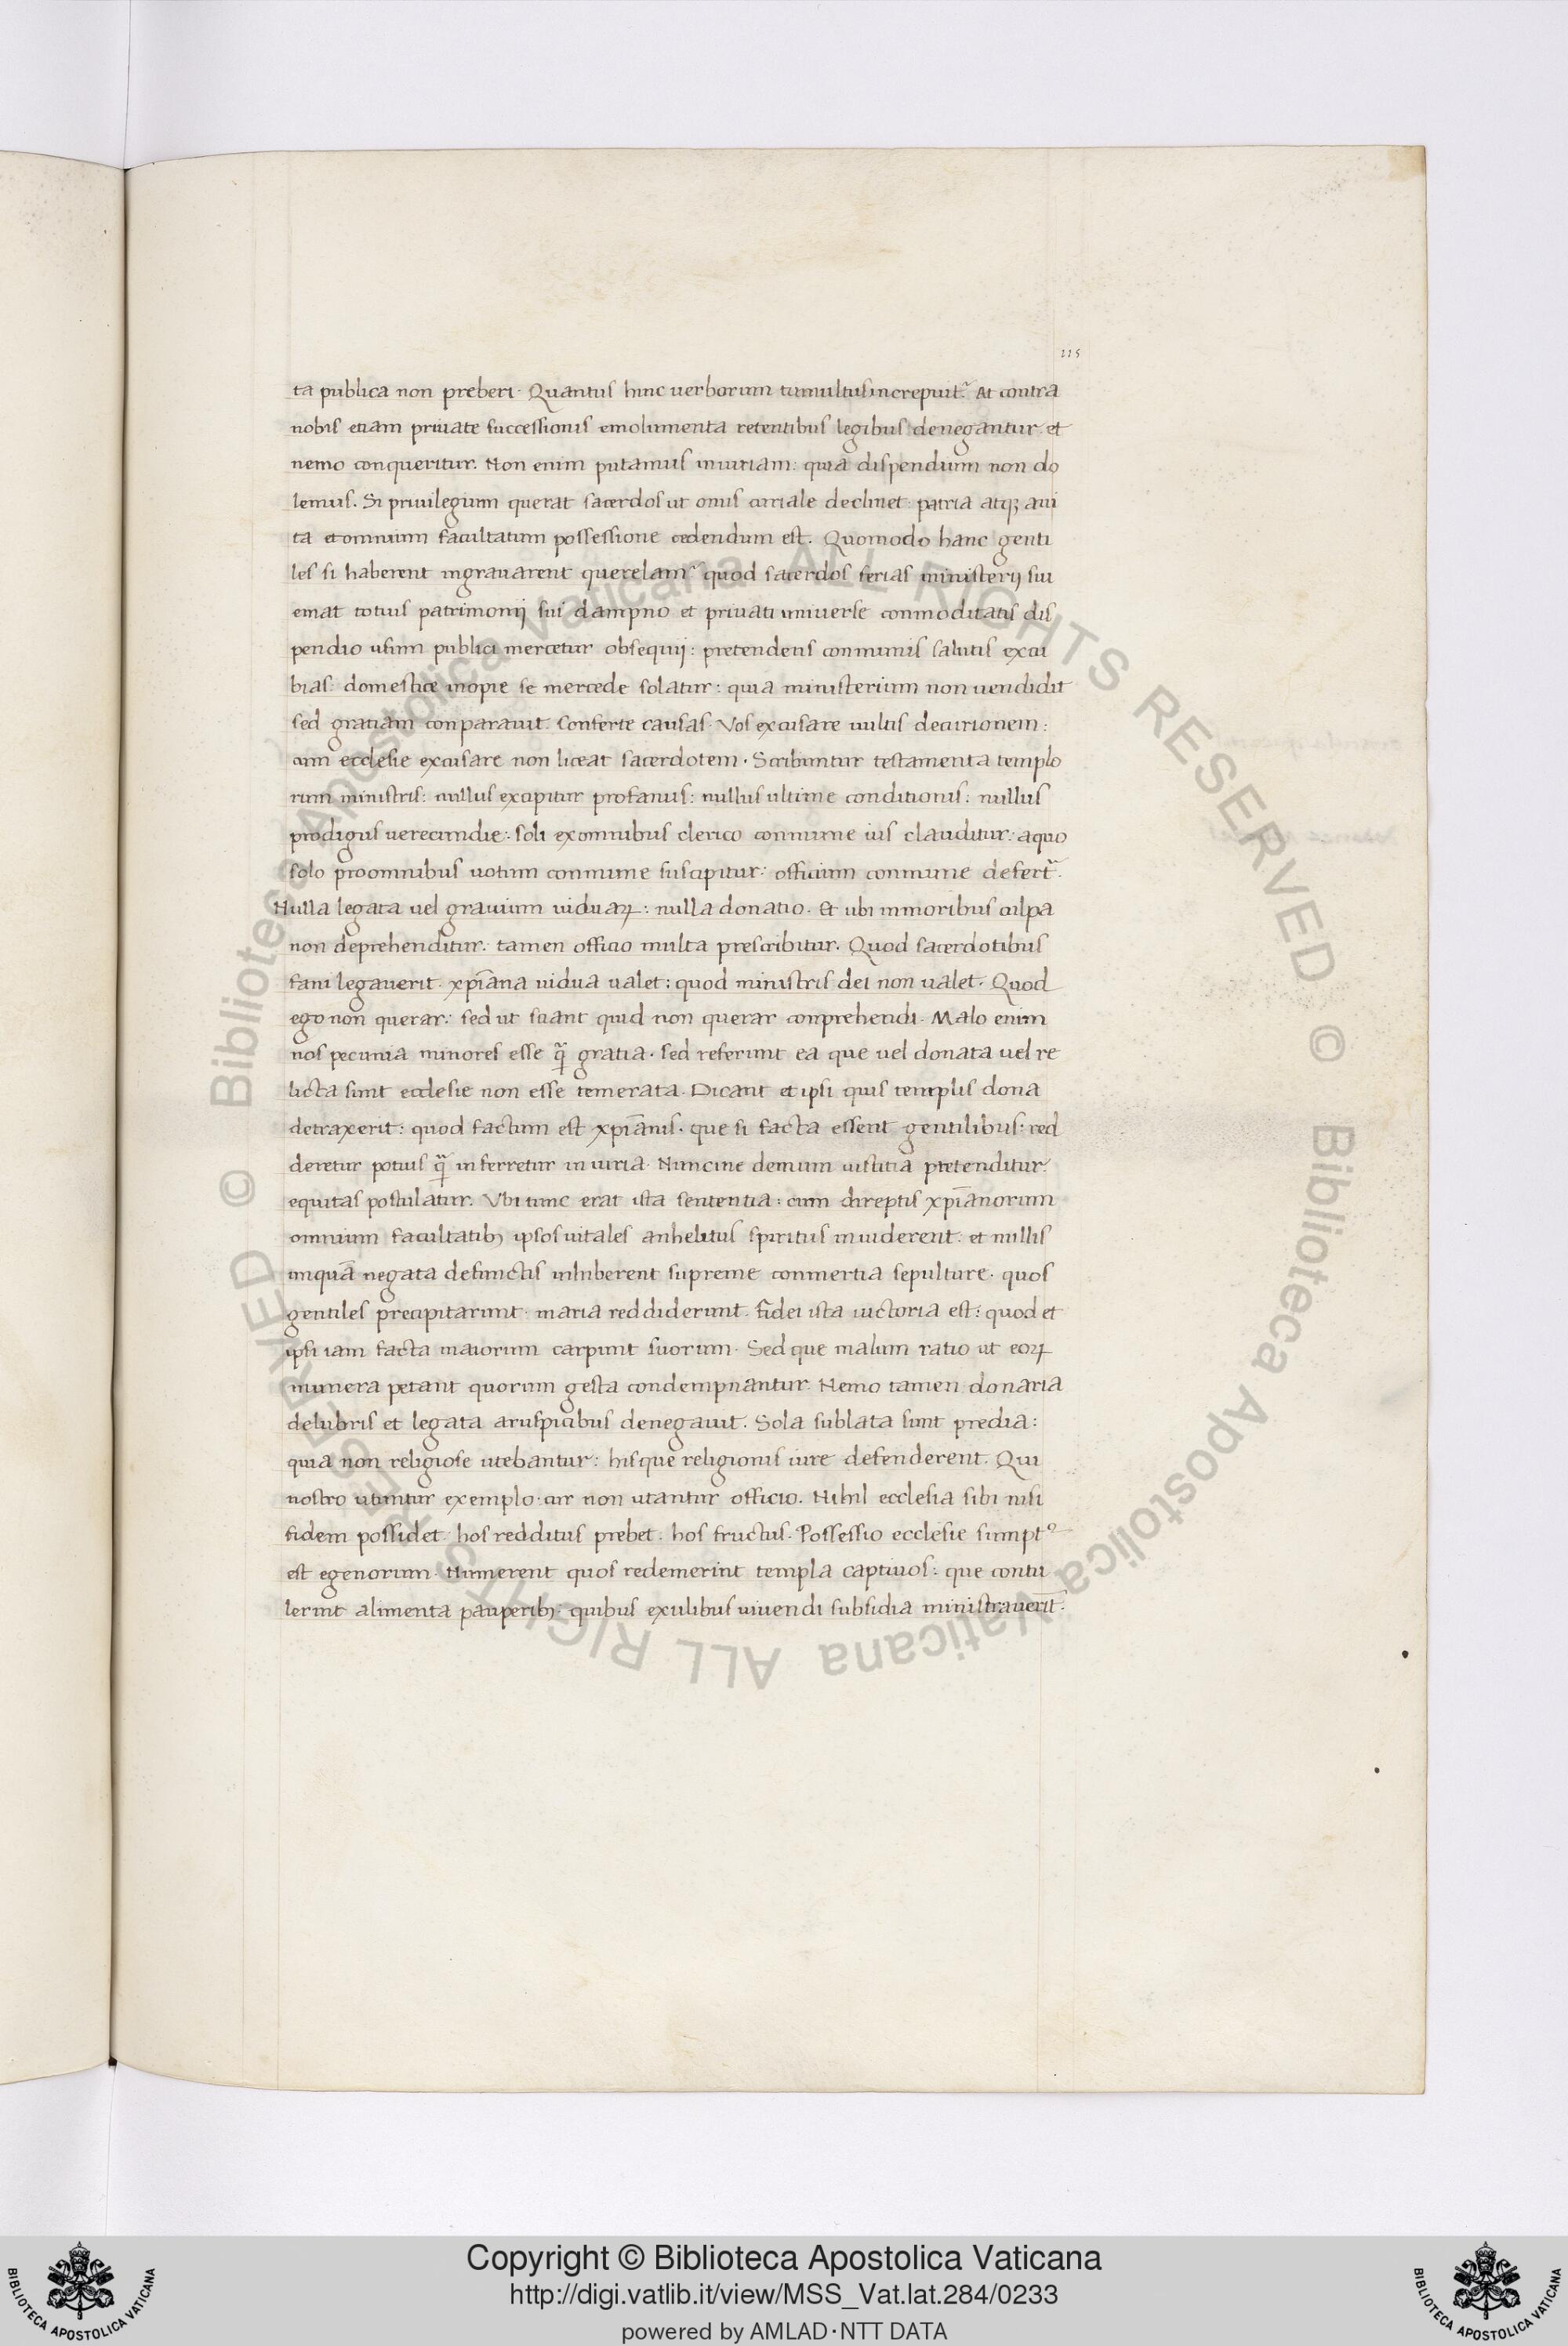 115
ta publica non preberi. Quantus hinc uerborum tumultus increpuit? At contra
nobis etiam priuate successionis emolumenta recentibus legibus denegantur. et
nemo conqueritur. Non enim putamus iniuriam: quia dispendium non do
lemus. Si priuilegium querat sacerdos ut onus curiale declinet: patria atqꝫ aui
ta et omnium facultatum possessione cedendum est. Quomodo hanc genti
les si haberent ingrauarent querelam? quod sacerdos ferias ministerij sui
emat totius patrimonij sui dampno et priuati uniuerse conmoditatis dis
pendio usum publici mercetur obsequij: pretendens conmunis salutis excu
bias: domestice inopie se mercede solatur: quia ministerium non uendidit
sed gratiam conparauit. Conferte causas. Vos excusare uultis decurionem:
cum ecclesie excusare non liceat sacerdotem. Scribuntur testamenta templo
rum ministris: nullus excipitur profanus: nullus ultime conditionis: nullus
prodigus uerecundie: soli ex omnibus clerico conmune ius clauditur: a quo
solo pro omnibus uotum conmune suscipitur: officium conmune defert᷑.
Nulla legata uel grauium uiduaꝝ: nulla donatio. Et ubi in moribus culpa
non deprehenditur: tamen officio multa prescribitur. Quod sacerdotibus
fani legauerit xp̄iana uidua ualet: quod ministris dei non ualet. Quod
ego non querar: sed ut sciant quid non querar conprehendi. Malo enim
nos pecunia minores esse qꝫ̃ gratia. sed referunt ea que uel donata uel re
licta sunt ecclesie non esse temerata. Dicant et ipsi quis templis dona
detraxerit: quod factum est xp̄ianis. que si facta essent gentilibus: red
deretur potius qꝫ̃ inferretur iniuria. Nuncine demum iustitia pretenditur?
equitas postulatur. Vbi tunc erat ista sententia: cum direptis xp̄ianorum
omnium facultatibꝫ ipsos uitales anhelitus spiritus inuiderent: et nullis
unquā negata defunctis inhiberent supreme conmertia sepulture. quos
gentiles precipitarunt maria reddiderunt. Fidei ista uictoria est: quod et
ipsi iam facta maiorum carpunt suorum. Sed que malum ratio ut eoꝝ
munera petant quorum gesta condempnantur. Nemo tamen donaria
delubris et legata aruspicibus denegauit. Sola sublata sunt predia:
quia non religiose utebantur: hisque religionis iure defenderent. Qui
nostro utuntur exemplo. cur non utantur officio. Nihil ecclesia sibi nisi
fidem possidet. hos redditus prebet. hos fructus. Possessio ecclesie sumptꝰ
est egenorum. Numerent quos redemerint templa captiuos: que contu
lerint alimenta pauperibꝫ: quibus exulibus uiuendi subsidia ministrauerīt.
© Biblioteca Apostolica Vaticana ALL RIGHTS RESERVED © Biblioteca Apostolica Vaticana ALL RIGHTS RESERVED
Copyright © Biblioteca Apostolica Vaticana
http://digi.vatlib.it/view/MSS_Vat.lat.284/0233
powered by AMLAD·NTT DATA
BIBLIOTECA APOSTOLICA VATICANA
BIBLIOTECA APOSTOLICA VATICANA